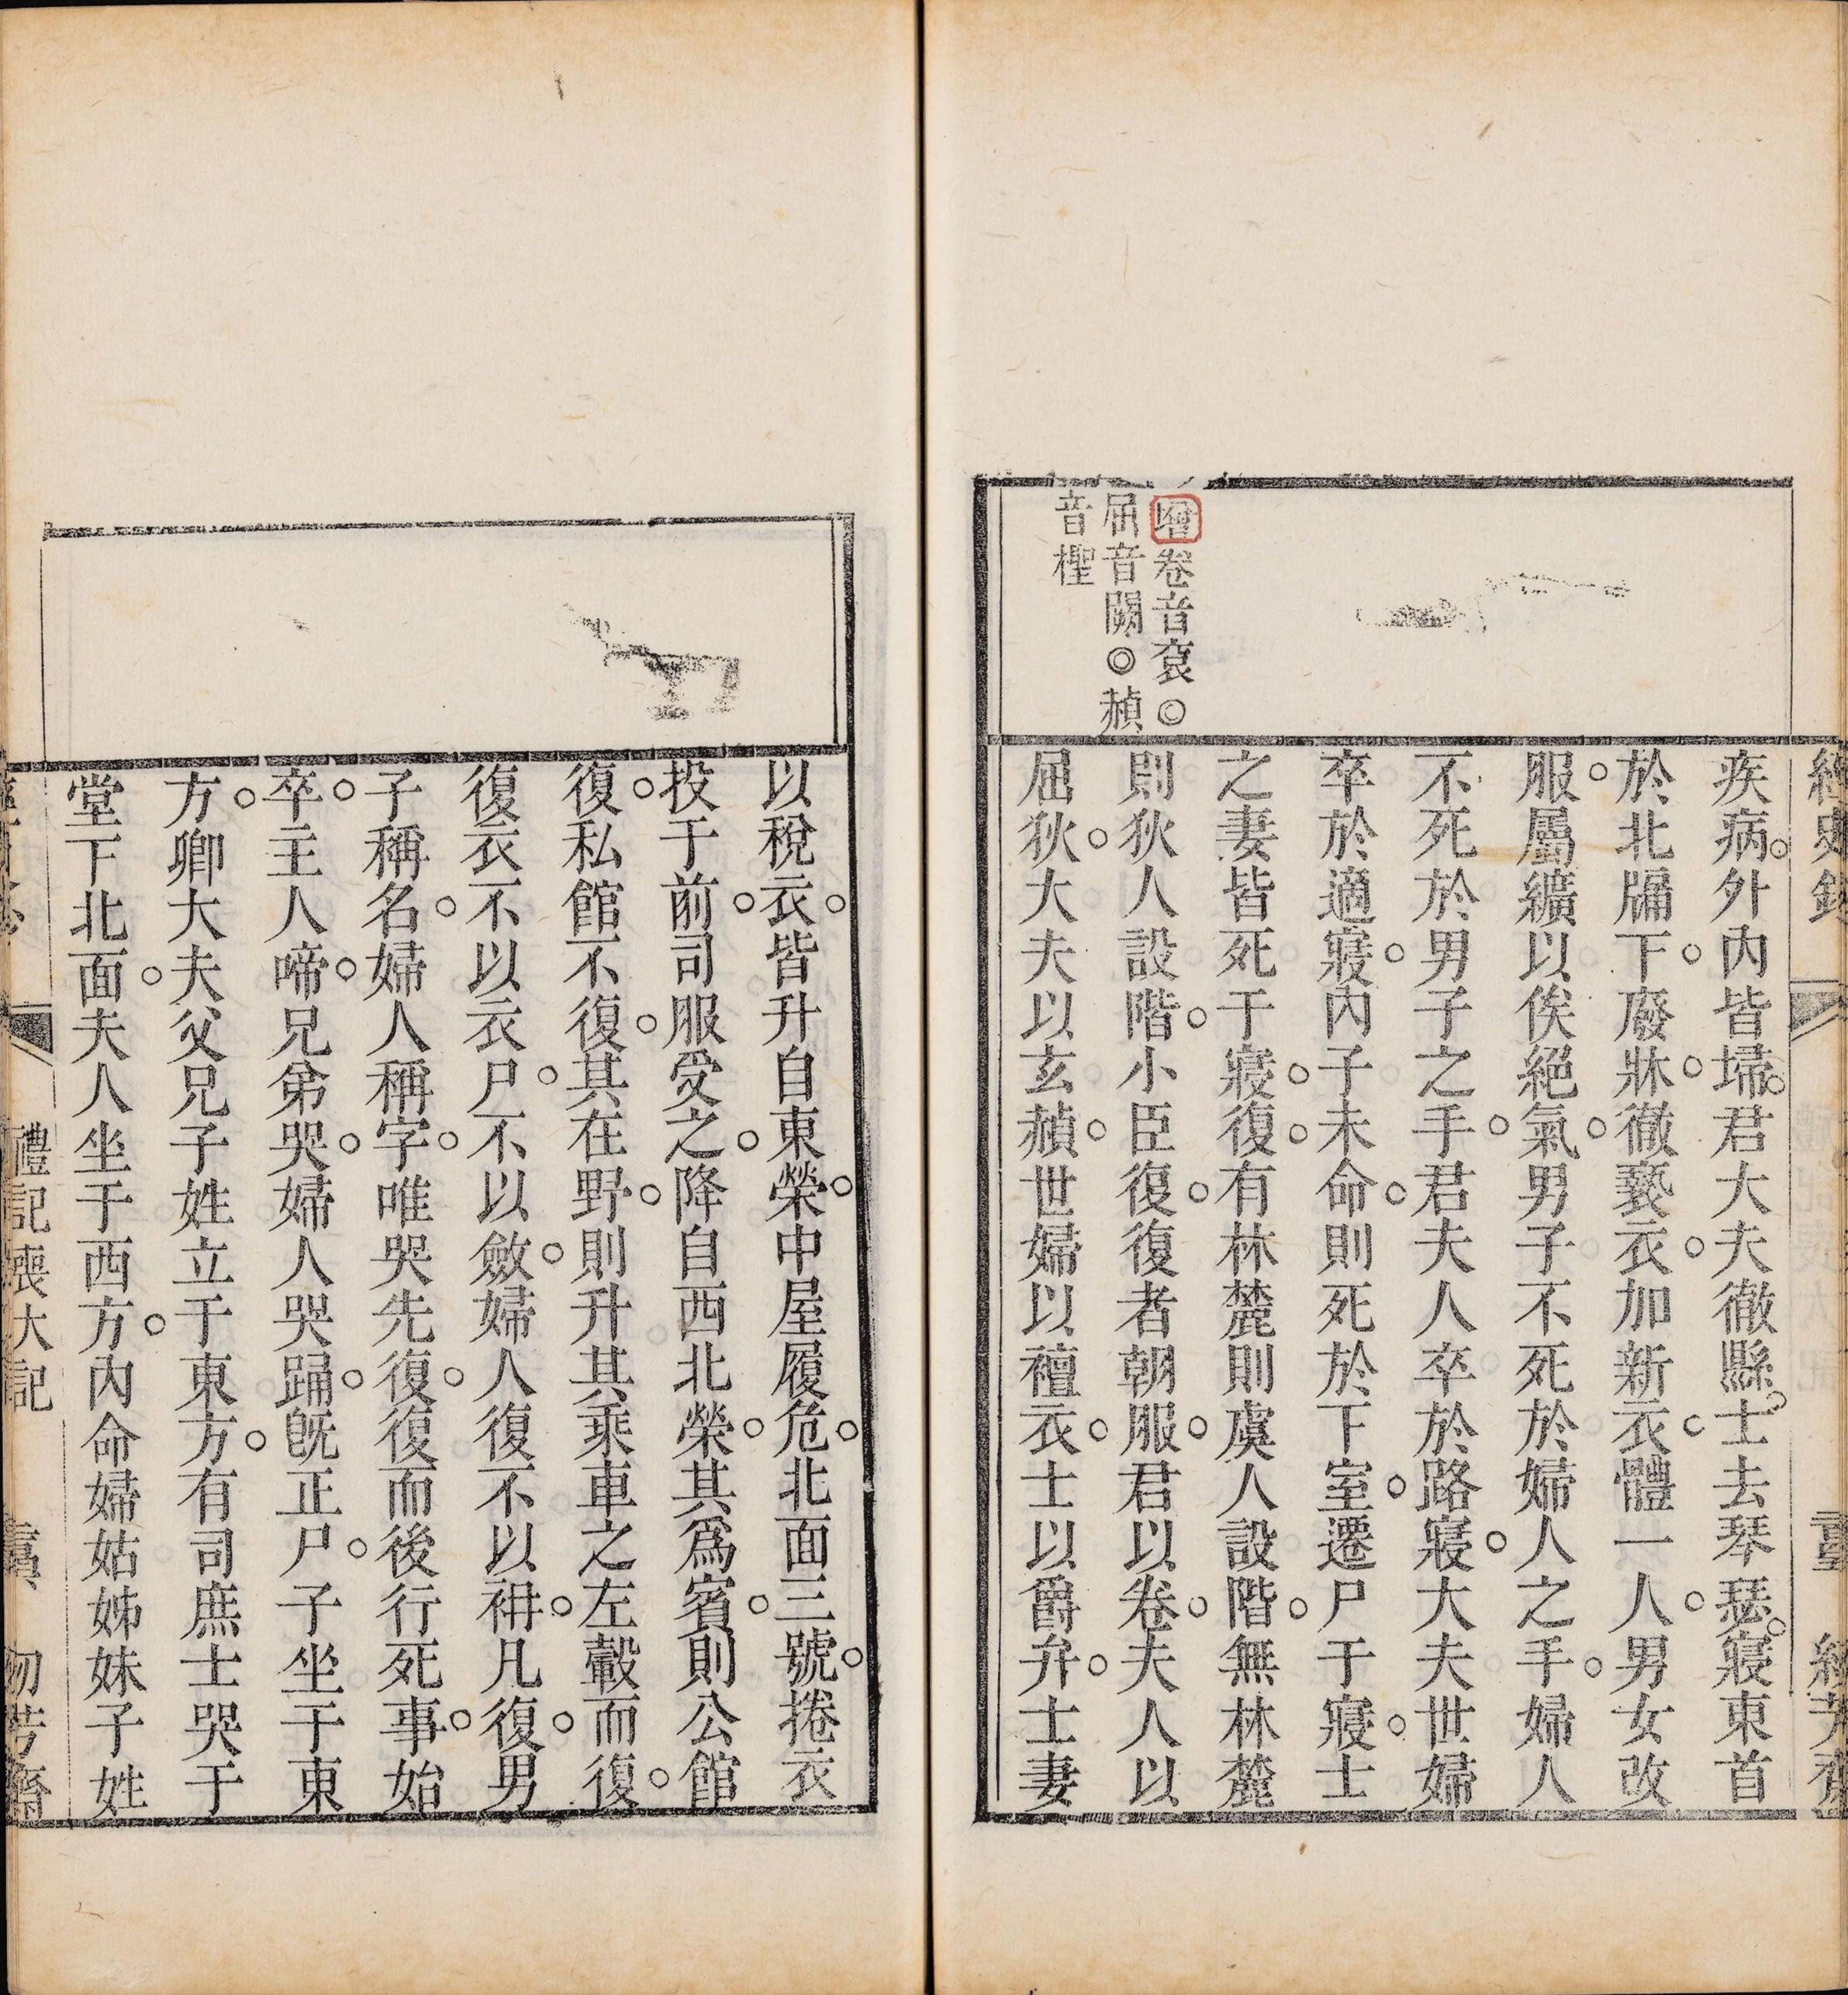 增卷音袞◎
屈音闕◎赬
音檉
疾病。外內皆埽。君大夫徹縣。士去琴瑟。寢東首
於北牖下。廢牀。徹褻衣。加新衣。體一人。男女改
服。屬纊以俟絕氣。男子不死於婦人之手。婦人
不死於男子之手。君夫人卒於路寢。大夫世婦
卒於適寢。內子未命。則死於下室。遷尸于寢。士
之妻皆死于寢。復。有林麓則虞人設階。無林麓
則狄人設階。小臣復。復者朝服。君以卷。夫人以
屈狄。大夫以玄赬。世婦以襢衣。士以爵弁。士妻
以稅衣。皆升自東榮。中屋履危。北面三號。捲衣
投于前。司服受之。降自西北榮。其爲賓。則公館
復。私館不復。其在野。則升其乘車之左轂而復。
復衣不以衣尸。不以斂。婦人復不以袡。凡復。男
子稱名。婦人稱字。唯哭先復。復而後行死事。始
卒。主人啼。兄弟哭。婦人哭踊。旣正尸。子坐于東
方。卿大夫父兄子姓立于東方。有司庶士哭于
堂下北面。夫人坐于西方。內命婦姑姊妹子姓
禮記喪大記